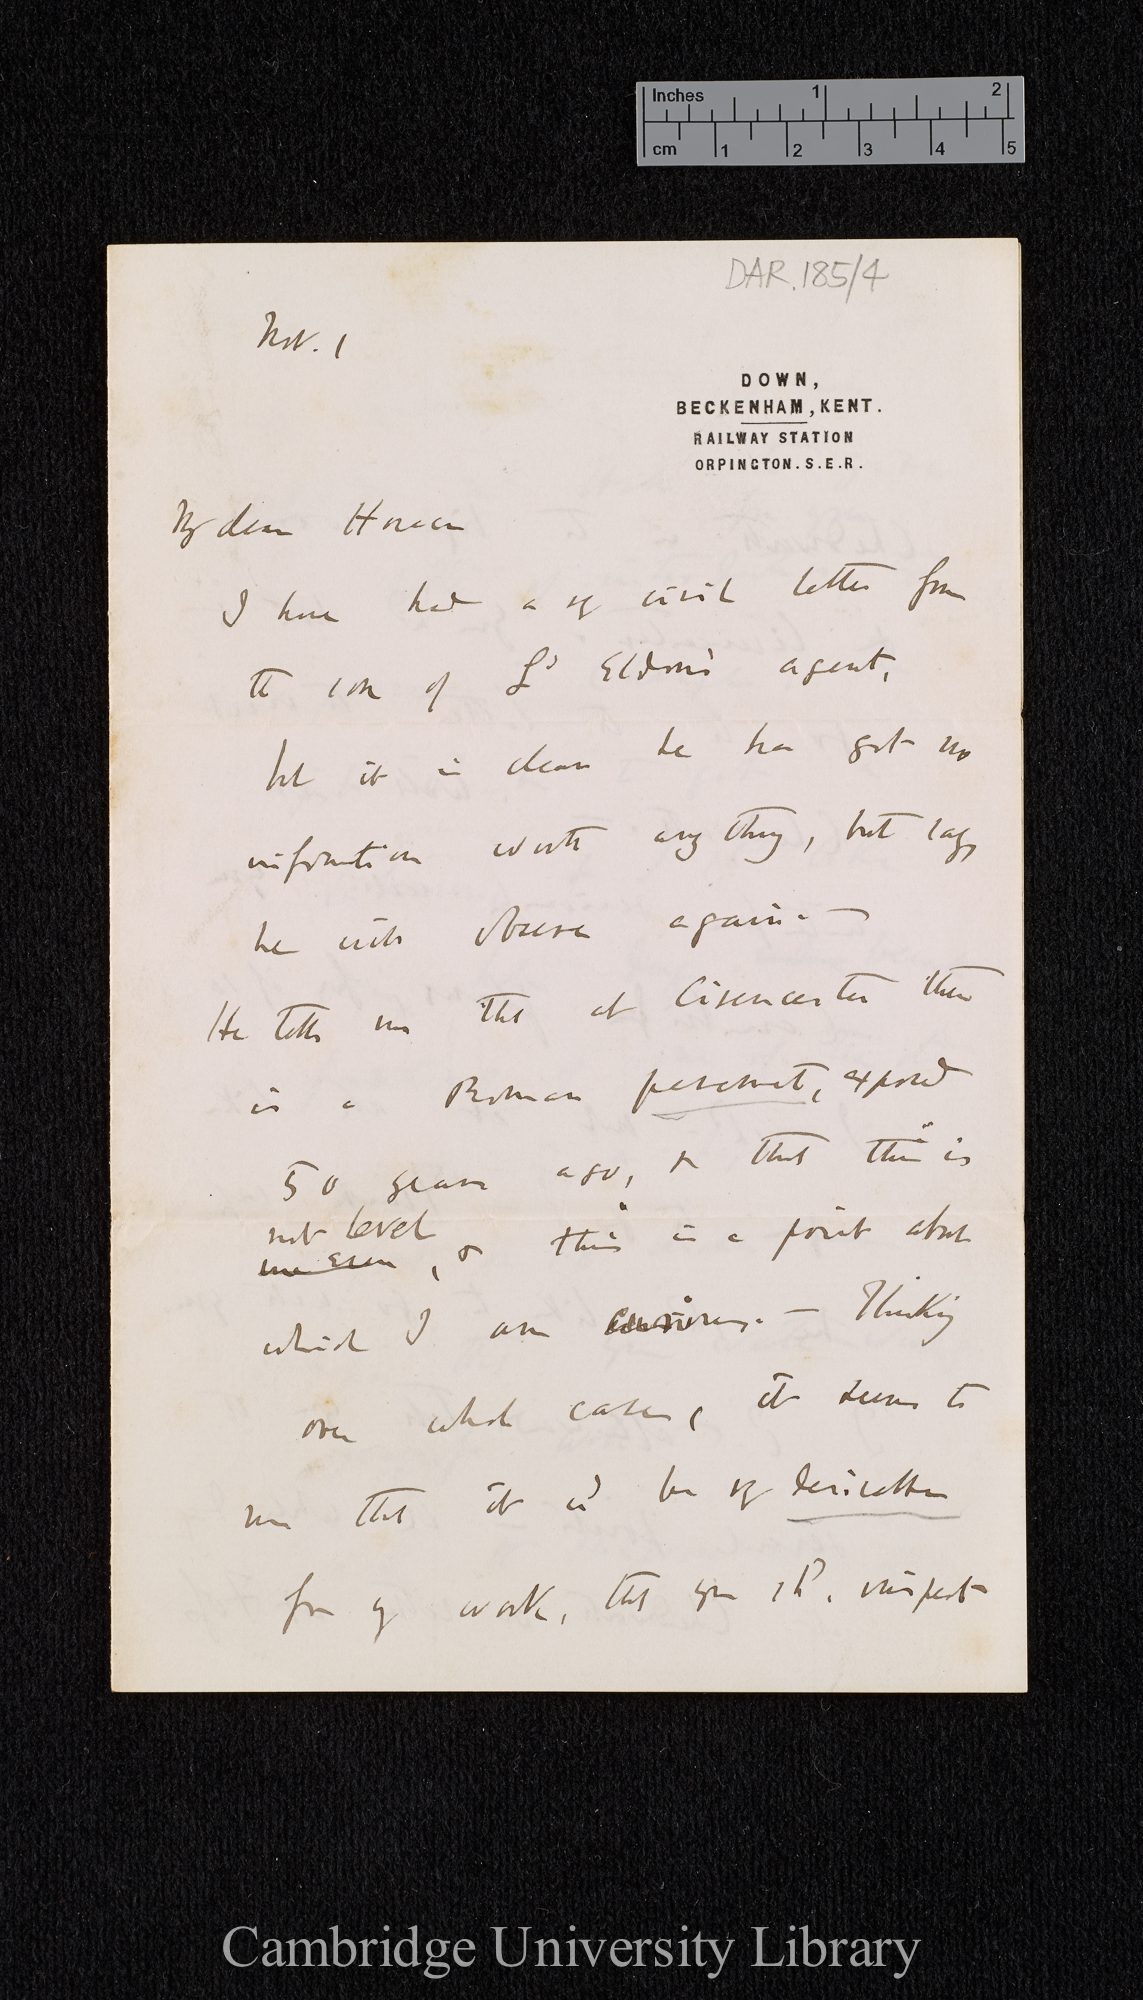 Inches 1 2
cm 1 2 3 4 5
DAR.185/4
Nov. 1
DOWN,
BECKENHAM, KENT.
RAILWAY STATION
ORPINGTON. S.E.R.
My dear Horace
I have had a vy civil letter from
the son of Ld Eldon's agent,
but it is clear he has got no
information worth any thing, but says
he will observe again. —
He tells me that at Cirencester there
is a Roman pavement, exposed
50 years ago, & that this is
not level
uneven, & this is a point about
which I am curious. — Thinking
over whole case, it seems to
me that it wd be vy desirable
for my work, that you shd. inspect
Cambridge University Library